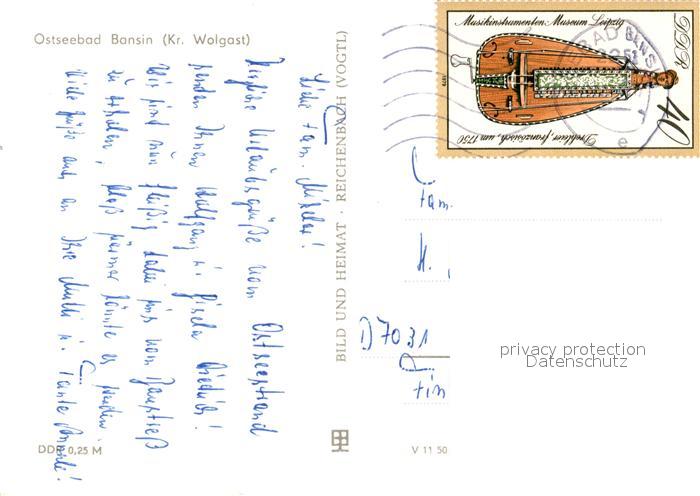 Ostseebad Bansin (Kr. Wolgast)
Liebe Fam.
Herzliche Urlaubsgrüße vom Ostseestrand
senden Ihnen Wolfgang u. Gisela
Wir sind nun fleißig dabei uns vom
zu erholen, bloß wärmer könnte es
Viele Grüße auch an Ihre Mutti u. Tante
BILD UND HEIMAT · REICHENBACH (VOGTL)
DDR 0,25 M
V 11 50
Musikinstrumenten-Museum Leipzig
DDR
40
Drehleier, französisch, um 1750
1979
BAD BANSIN
e
Fam.
M.
D 7031
privacy protection
Datenschutz